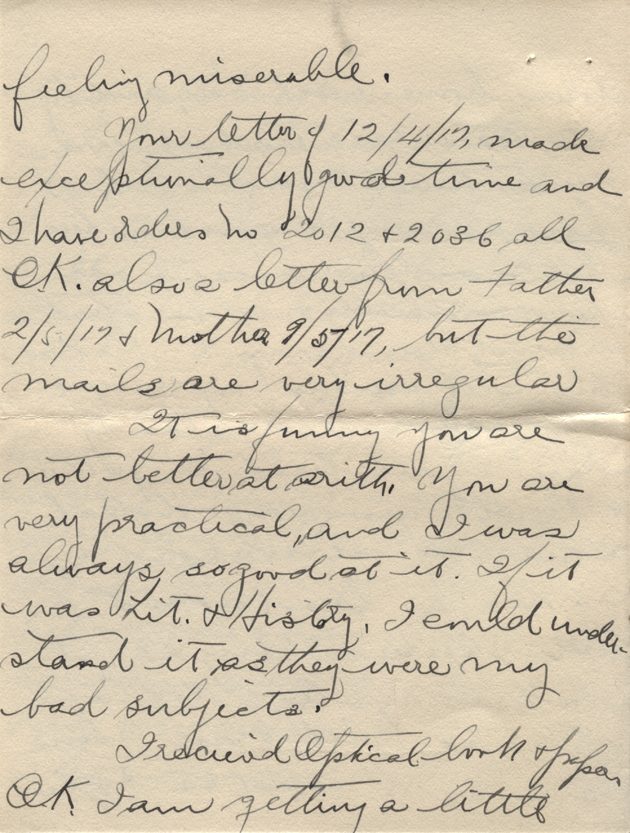 feeling miserable.
Your letter of 12/4/17, made
exceptionally good time and
I have orders No 2012 & 2036 all
OK. also a letter from Father
2/5/17 & Mother 9/5/17, but the
mails are very irregular
It is funny you are
not better at arith. You are
very practical, and I was
always so good at it. If it
was Lit. & History, I could under-
stand it as they were my
bad subjects.
I recieved Optical book & paper
OK. I am getting a little